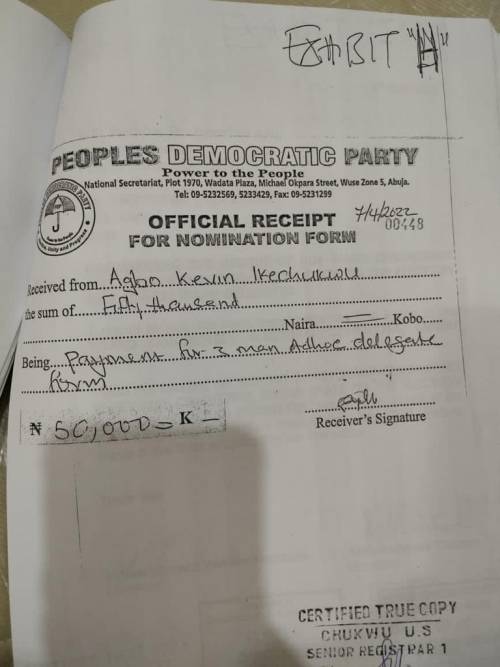 EXHIBIT "H"
PEOPLES DEMOCRATIC PARTY
Power to the People
National Secretariat, Plot 1970, Wadata Plaza, Michael Okpara Street, Wuse Zone 5, Abuja.
Tel: 09-5232569, 5233429, Fax: 09-5231299
OFFICIAL RECEIPT
7/4/2022
00448
FOR NOMINATION FORM
Received from Agbo Kevin Ikechukwu
the sum of Fifty thousand
Naira = Kobo
Being Payment for 3 man Adhoc delegate
form
₦ 50,000= K –
Receiver's Signature
CERTIFIED TRUE COPY
CHUKWU U.S
SENIOR REGISTRAR 1